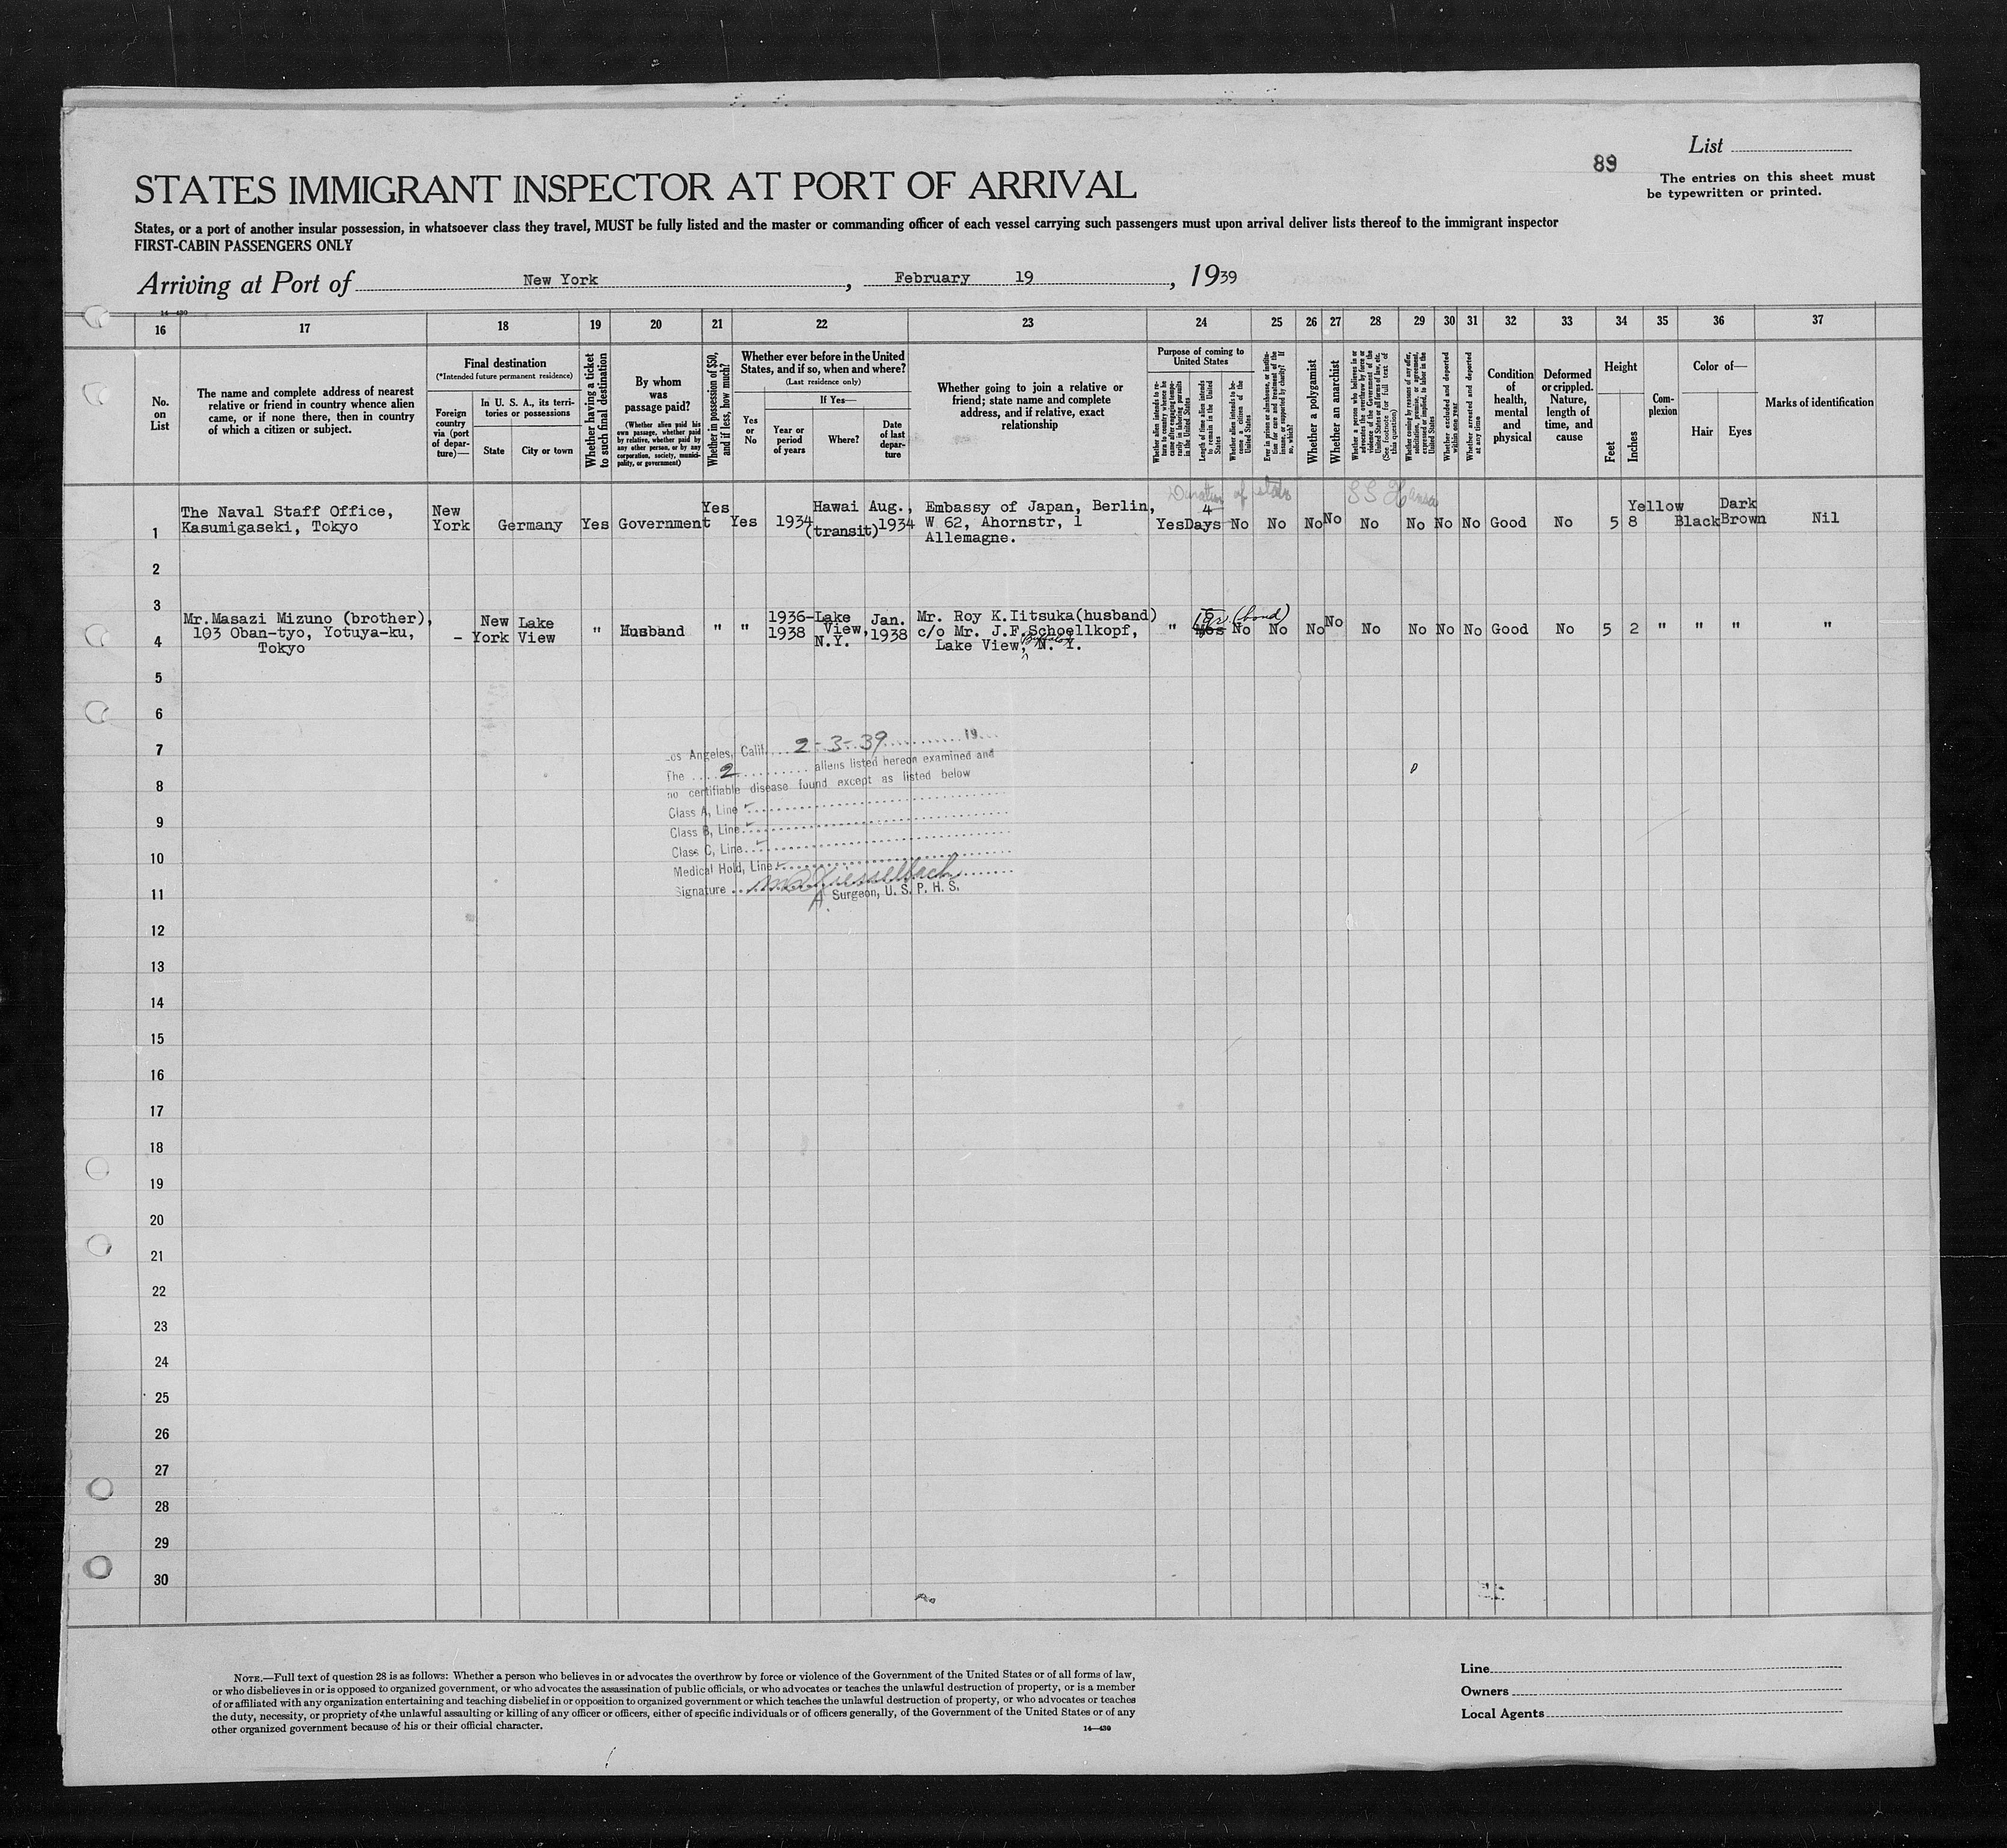 List
89
The entries on this sheet must
be typewritten or printed.
STATES IMMIGRANT INSPECTOR AT PORT OF ARRIVAL
States, or a port of another insular possession, in whatsoever class they travel, MUST be fully listed and the master or commanding officer of each vessel carrying such passengers must upon arrival deliver lists thereof to the immigrant inspector
FIRST-CABIN PASSENGERS ONLY
Arriving at Port of New York, February 19, 1939
14—430
16 17 18 19 20 21 22 23 24 25 26 27 28 29 30 31 32 33 34 35 36 37
No.
on
List
The name and complete address of nearest
relative or friend in country whence alien
came, or if none there, then in country
of which a citizen or subject.
Final destination
(*Intended future permanent residence)
Foreign
country
via (port
of depar-
ture)—
In U. S. A., its terri-
tories or possessions
State
City or town
Whether having a ticket
to such final destination
By whom
was
passage paid?
(Whether alien paid his
own passage, whether paid
by relative, whether paid by
any other person, or by any
corporation, society, munici-
pality, or government)
Whether in possession of $50,
and if less, how much?
Whether ever before in the United
States, and if so, when and where?
(Last residence only)
Yes
or
No
If Yes—
Year or
period
of years
Where?
Date
of last
depar-
ture
Whether going to join a relative or
friend; state name and complete
address, and if relative, exact
relationship
Purpose of coming to
United States
Whether alien intends to re-
turn to country whence he
came after engaging tempo-
rarily in laboring pursuits
in the United States
Length of time alien intends
to remain in the United
States
Whether alien intends to be-
come a citizen of the
United States
Ever in prison or almshouse, or institu-
tion for care and treatment of the
insane, or supported by charity? If
so, which?
Whether a polygamist
Whether an anarchist
Whether a person who believes in or
advocates the overthrow by force or
violence of the Government of the
United States or all forms of law, etc.
(See footnote for full text of
this question)
Whether coming by reasons of any offer,
solicitation, promise, or agreement,
expressed or implied, to labor in the
United States
Whether excluded and deported
within one year
Whether arrested and deported
at any time
Condition
of
health,
mental
and
physical
Deformed
or crippled.
Nature,
length of
time, and
cause
Height
Feet
Inches
Com-
plexion
Color of—
Hair
Eyes
Marks of identification
Duration of status SS Hansa
1
The Naval Staff Office,
Kasumigaseki, Tokyo
New
York
Germany Yes Government Yes Yes 1934
Hawai
(transit)
Aug.,
1934
Embassy of Japan, Berlin,
W 62, Ahornstr, 1
Allemagne.
Yes
4
Days No No No No No No No No Good No 5 8 Yellow Black
Dark
Brown
Nil
2
3
4
Mr.Masazi Mizuno (brother),
103 Oban-tyo, Yotuya-ku,
Tokyo
–
New
York
Lake
View
" Husband " "
1936-
1938
Lake
View,
N.Y.
Jan.
1938
Mr. Roy K.Iitsuka(husband)
c/o Mr. J.F.Schoellkopf,
Buffalo
Lake View, N. Y.
"
(bond)
Yes No No No No No No No No Good No 5 2 " " " "
5
6
7
8
9
10
11
Los Angeles, Calif. 2-3-39 19
The 2 aliens listed hereon examined and
no certifiable disease found except as listed below
Class A, Line
Class B, Line
Class C, Line
Medical Hold, Line
Signature
A. Surgeon, U. S. P. H. S.
12
13
14
15
16
17
18
19
20
21
22
23
24
25
26
27
28
29
30
NOTE.—Full text of question 28 is as follows: Whether a person who believes in or advocates the overthrow by force or violence of the Government of the United States or of all forms of law,
or who disbelieves in or is opposed to organized government, or who advocates the assassination of public officials, or who advocates or teaches the unlawful destruction of property, or is a member
of or affiliated with any organization entertaining and teaching disbelief in or opposition to organized government or which teaches the unlawful destruction of property, or who advocates or teaches
the duty, necessity, or propriety of the unlawful assaulting or killing of any officer or officers, either of specific individuals or of officers generally, of the Government of the United States or of any
other organized government because of his or their official character.
14—430
Line
Owners
Local Agents